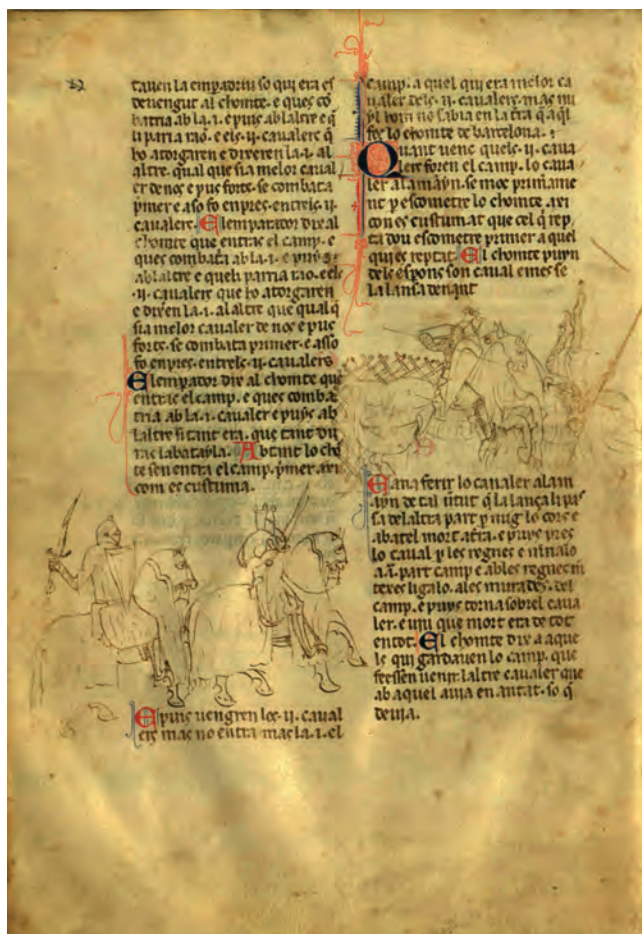 tauen la empadriu so qui era es
deuengut al chomte. e ques cō
batria ab la .i. e puys ab laltre e q̄
li parria rao. e els .ii. caualers q̄
ho atorgaren e dixeren la .i. al
altre. qual que sia melor caual
er de nos e pus forts. se combata
p̄mer e aso fo en pres. entrels .ii.
caualers. Elemparador dix al
chomte que entras el camp. e
ques combata ab la .i. e puys
ab laltre e queli parria rao. e els
.ii. caualers que ho atorgaren
e dixen la .i. al altre que qual q̄
sia melor caualer de nos e pus
forts. se combata primer. e asso
fo en pres. entrels .ii. caualers
Elemparor dix al chomte que
entras el camp. e ques comba
tria ab la .i. caualer e puys ab
laltre si tant era. que tant du
ras la batayla. Abtant lo chō
te sen entra el camp. p̄mer. axi
com es custuma.
E puis uengren los .ii. caual
ers mas no entra mas la .i. el
camp. a quel qui era melor ca
ualer dels .ii. caualers. mas nu
yl hom no sabia en la t̄ra q̄ aq̄i
fos lo chomte de barcelona.
Quant uenc quels .ii. caua
lers foren el camp. lo caua
ler alamayn. se moc primame
nt p escometre lo chomte. axi
con es custumat que cel q̄ rep
ta dou escometre primer a quel
qui es reptat. El chomte puyn
dels espons son caual e mes se
la lansa denant
E ana ferir lo caualer alam
ayn de tal u̇tut q̄ la lança li pas
sa delaltra part p mig lo cors e
abatel mort at̄ra. e puys pres
lo caual p les regnes e menalo
a .i. part camp e ables regnes m
texes ligalo. ales murades. del
camp. e puys torna sobrel caua
ler. e uiu que mort era de tot
entot. El chomte dix a aque
ls qui gardauen lo camp. que
fessen uenir. laltre caualer que
ab aquel auia en antat. so q̄
deuia.